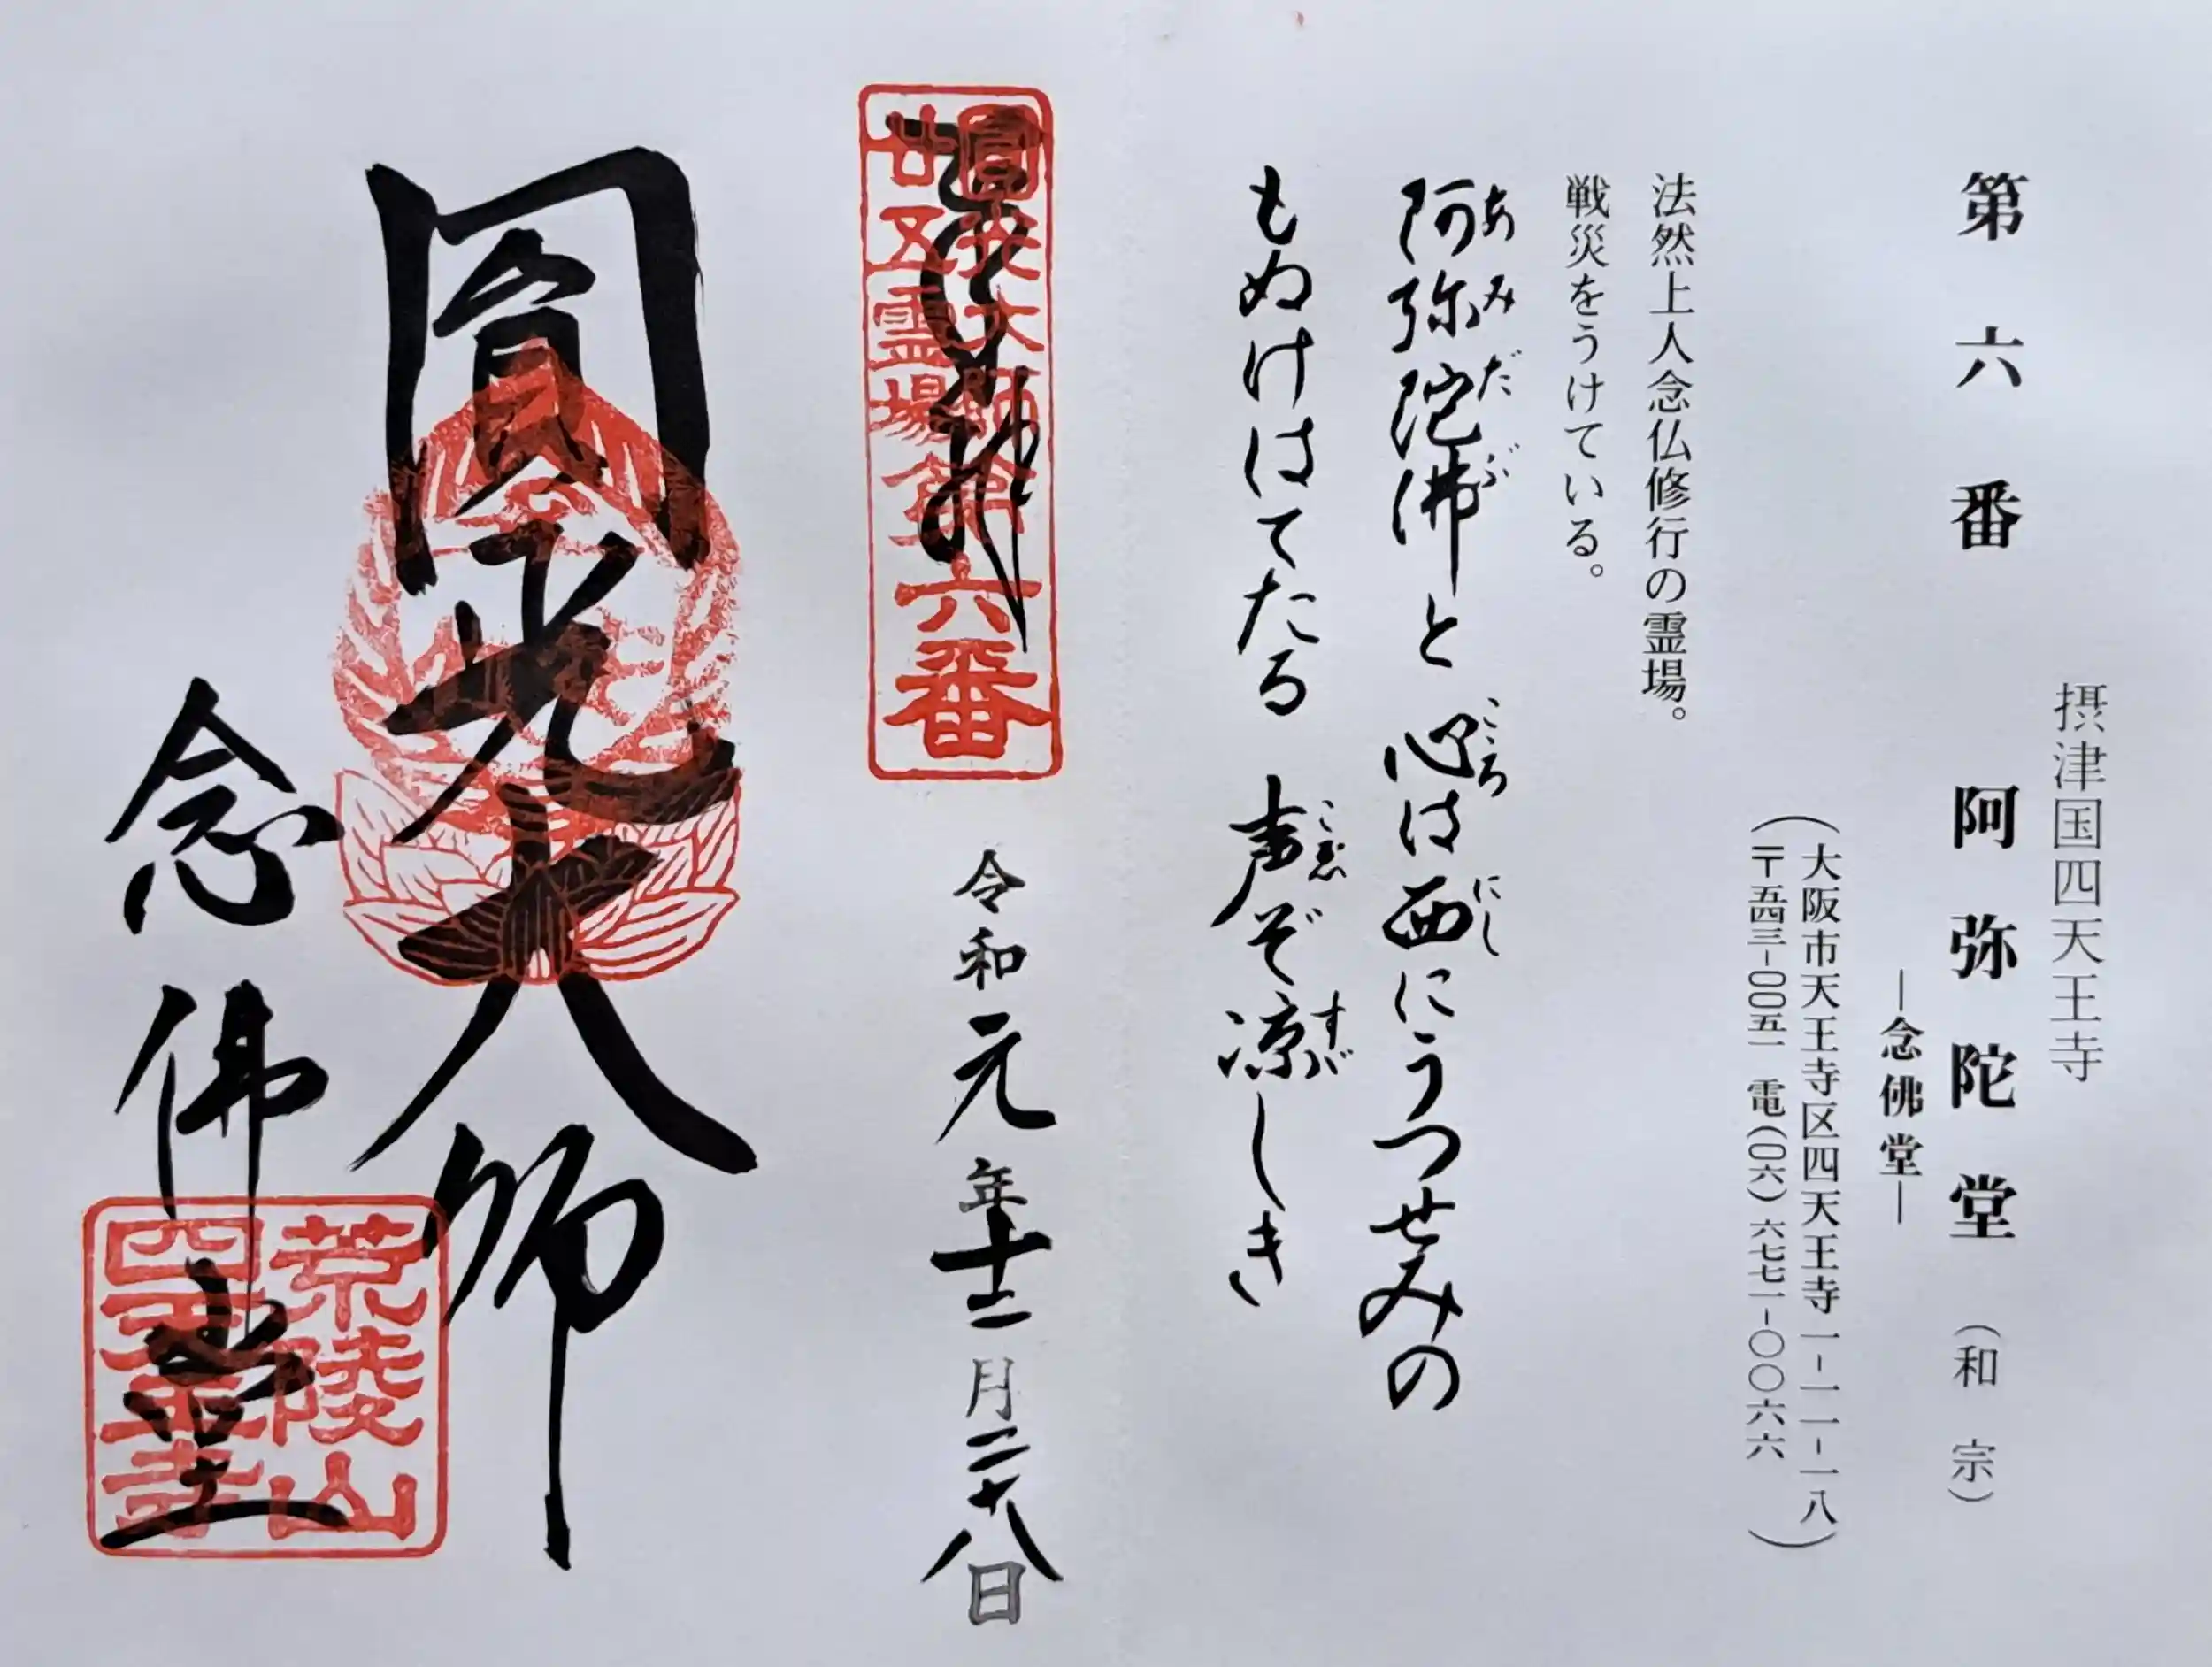 摂津国四天王寺
第六番 阿弥陀堂（和宗）
―念佛堂―
（大阪市天王寺区四天王寺一-一一-一八
〒五四三-〇〇五一 電（〇六）六七七一-〇〇六六）
法然上人念仏修行の霊場。
戦災をうけている。
阿弥陀佛と 心は西にうつせみの
あみだぶ こころ にし
もぬけはてたる 声ぞ涼しき
こゑ すゞ
圓光大師
廿五霊場
第六番
令和元年十二月二十八日
圓光大師
念佛堂
荒陵山
四天王寺